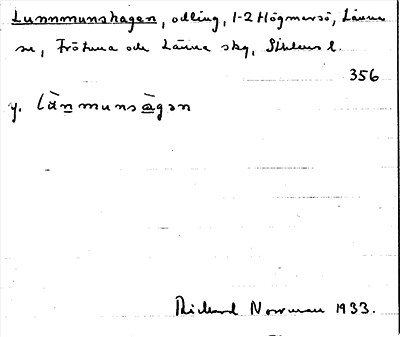 Lunnmunshagen, odling, 1-2 Högmarsö, Länna
sn, Frötuna och Länna skg, Sthlms l.
356
y. lànmunsàgən
Rickard Norrman 1933.